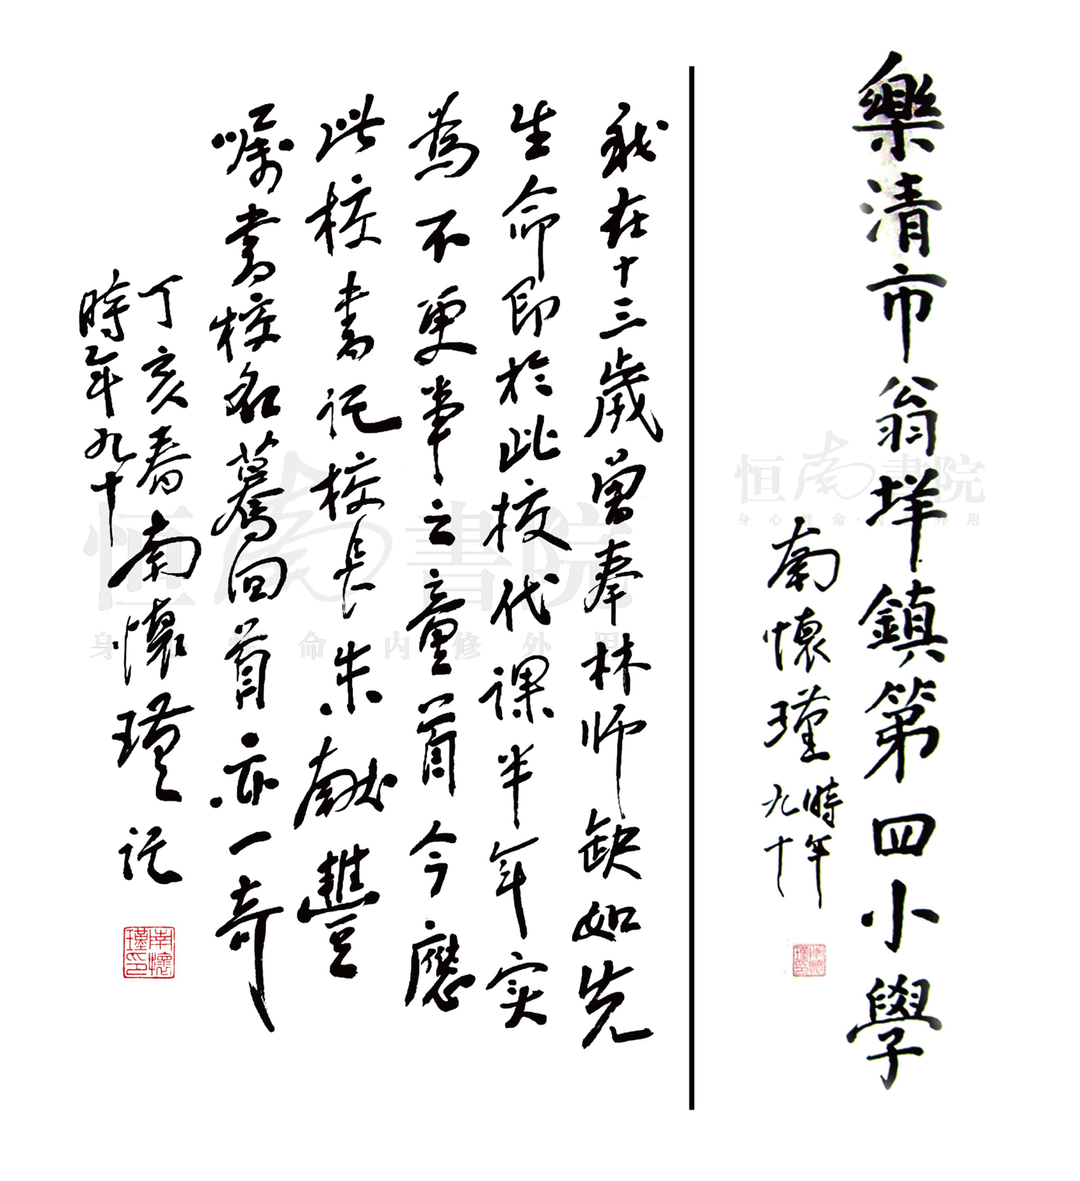 樂清市翁垟鎮第四小學
南懷瑾
時年
九十
我在十三歲曾奉林师缺如先
生命即於此校代课半年实
為不更事之童蒙今應
此校書记校长朱献豐
嘱書校名蓦回首亦一奇
丁亥春南懷瑾记
時年九十
南懷
瑾印
南懷
瑾印
恒南書院
身心性命·内修外用
恒南書院
身心性命·内修外用